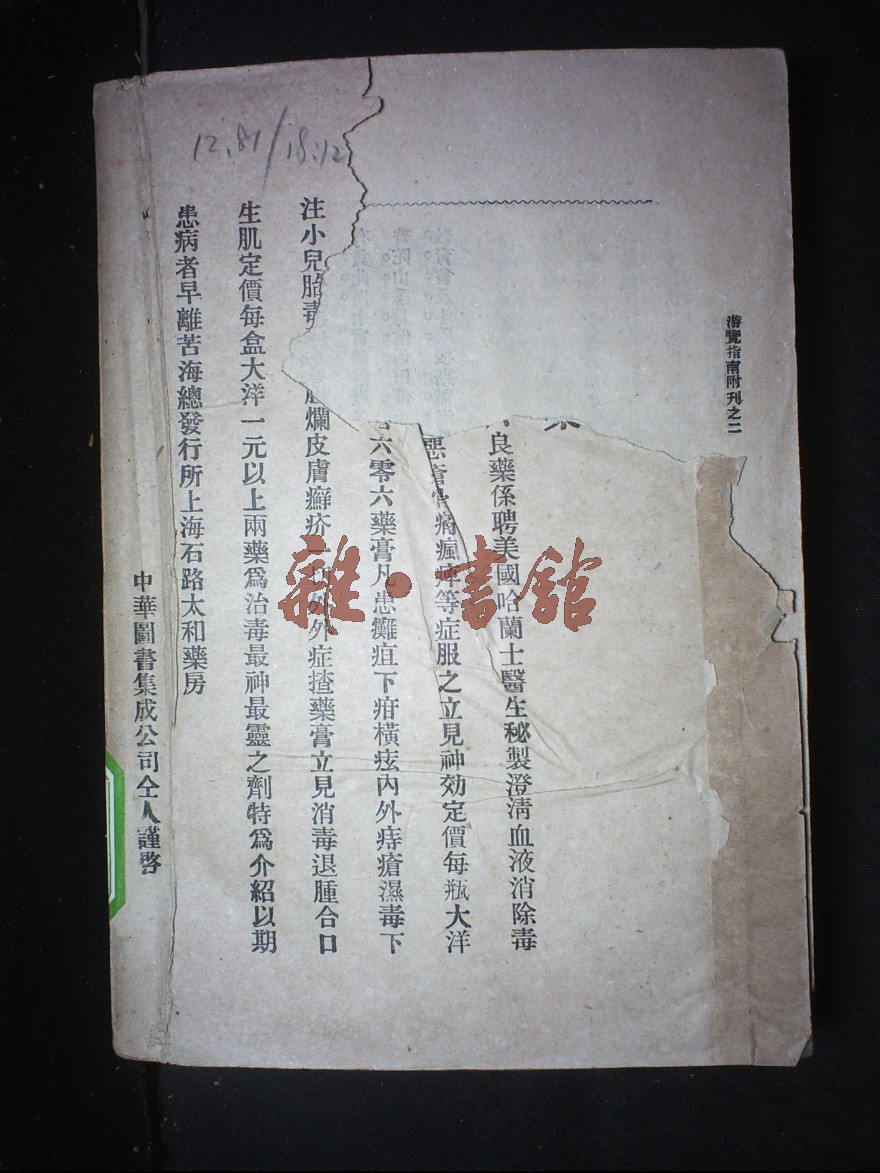 12.81/18.12
游覽指南附刊之二
良藥係聘美國哈蘭士醫生秘製澄淸血液消除毒
惡瘡骨痛瘋痺等症服之立見神効定價每瓶大洋
六零六藥膏凡患癱疽下疳橫痃內外痔瘡濕毒下
注小兒胎毒 爛皮膚癬疥一切外症揸藥膏立見消毒退腫合口
生肌定價每盒大洋一元以上兩藥爲治毒最神最靈之劑特爲介紹以期
患病者早離苦海總發行所上海石路太和藥房
中華圖書集成公司仝人謹啓
雜·書館